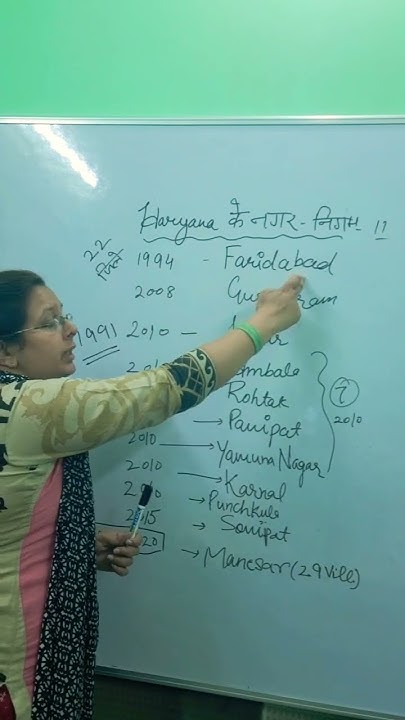 Haryana के नगर-निगम 11
22 जिले
1994 - Faridabad
2008
1991 2010 -
Rohtak
→ Panipat
2010 → Yamuna Nagar
2010 → Karnal
Punchkula
2015 → Sonipat
20 → Manesar (29 Vill)
7
2010